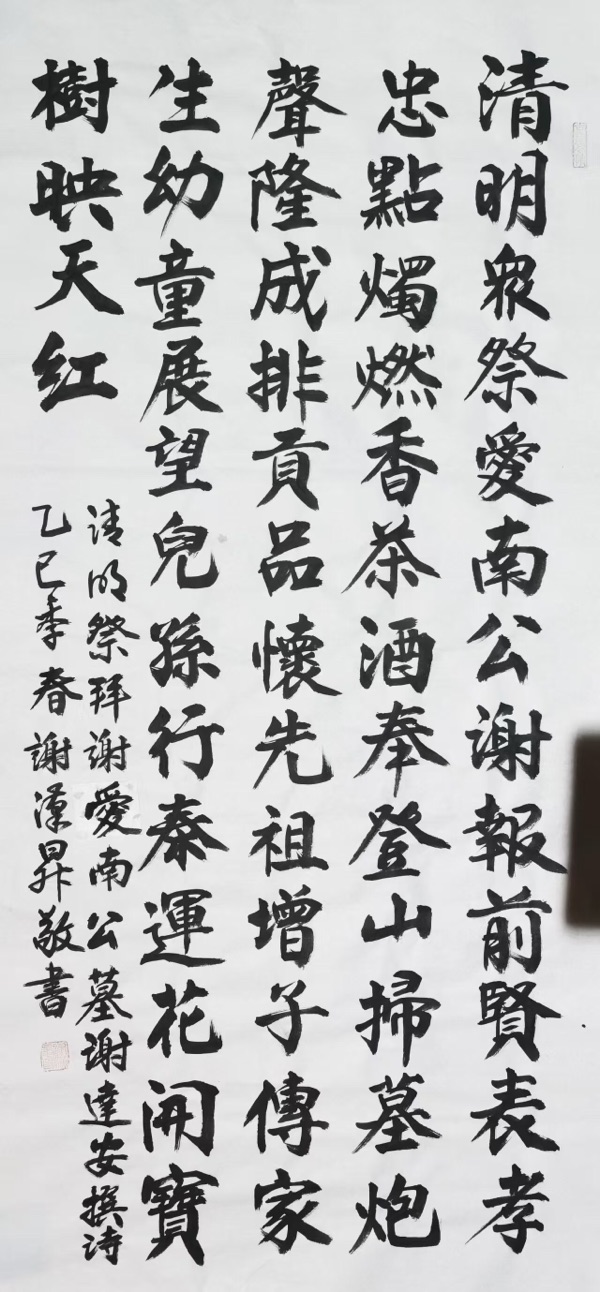 清明眾祭愛南公謝報前賢表孝
忠點燭燃香茶酒奉登山掃墓炮
聲隆成排貢品懷先祖增子傳家
生幼童展望兒孫行泰運花開寶
樹映天红
清明祭拜謝愛南公墓謝達安撰詩
乙巳季春謝漢昇敬書